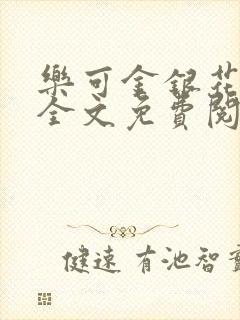 樂可金銀花
全文免費閱
健速 有池智實